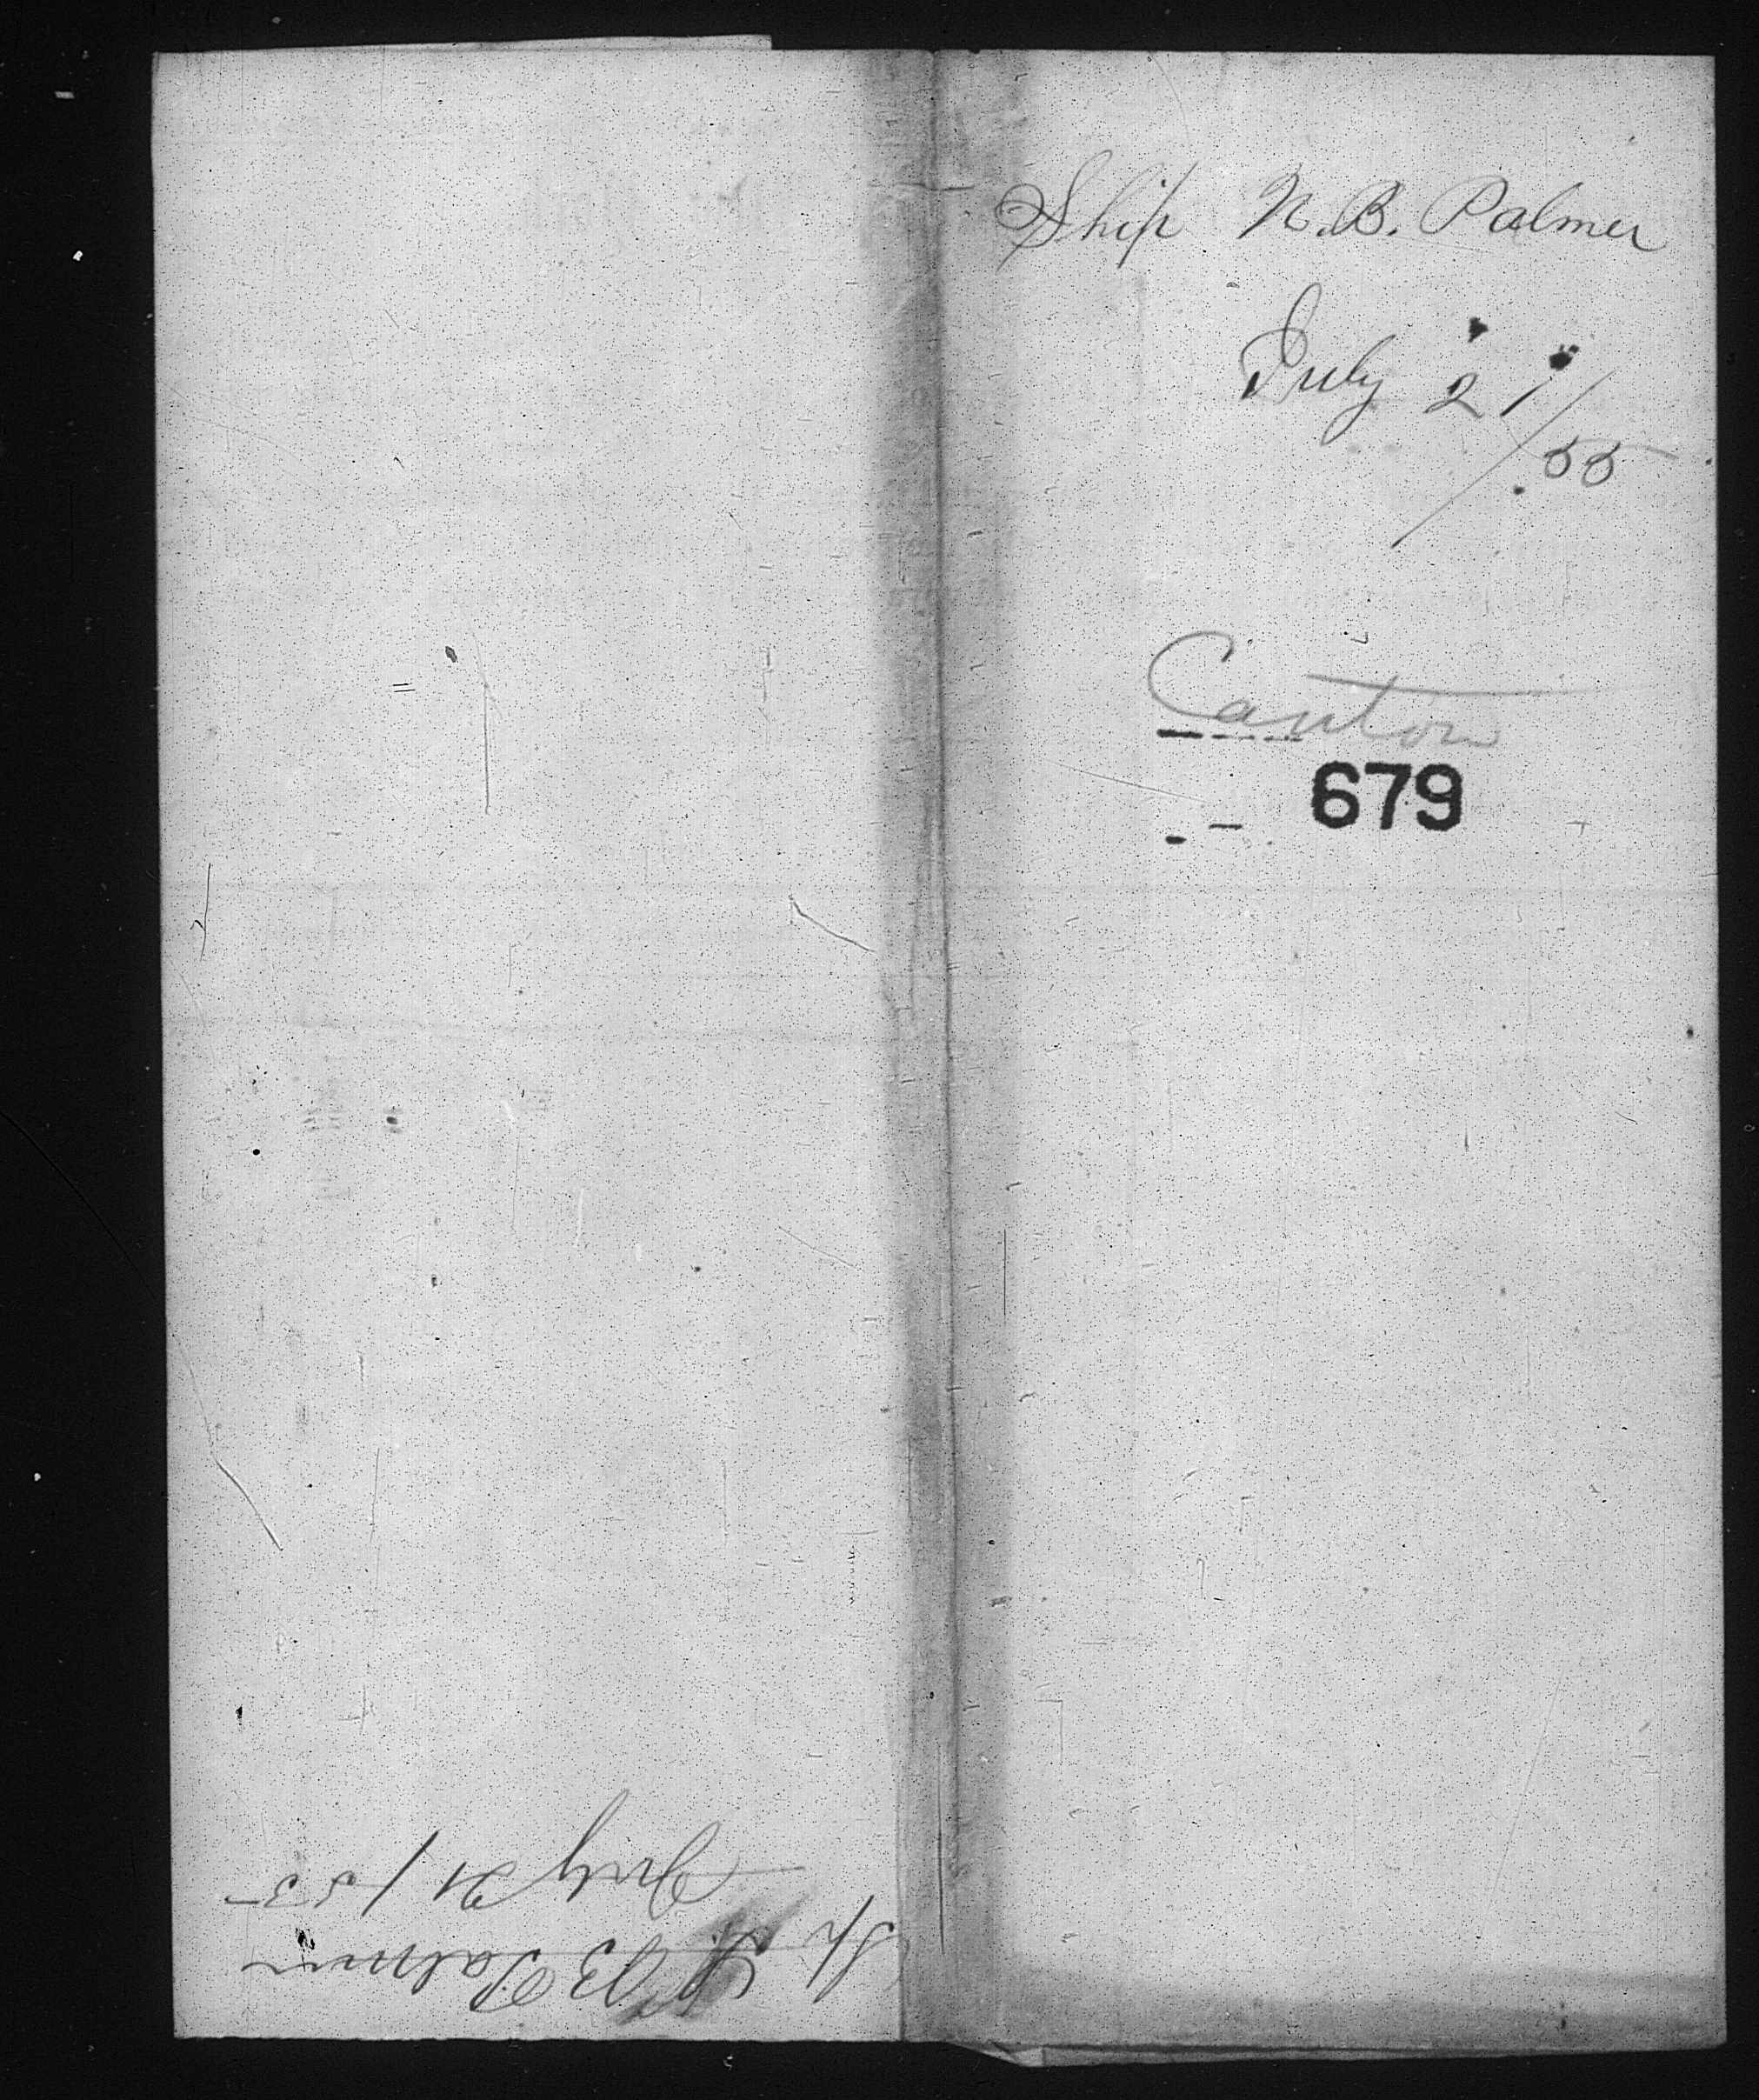 Ship N. B. Palmer
July 21/55
Canton
679
Sh N. B Palmer
July 21/55